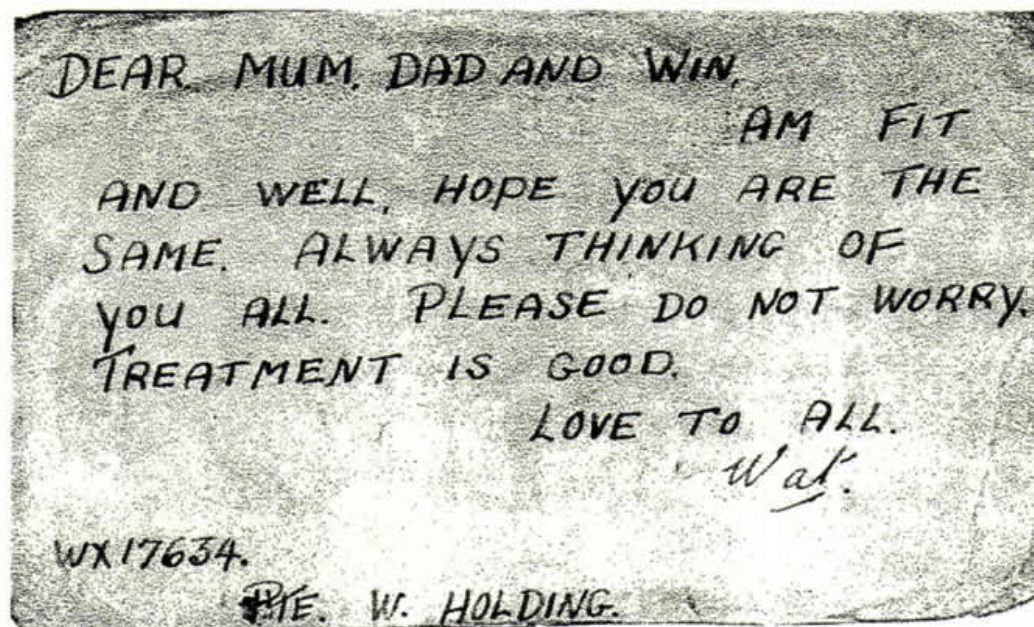 DEAR. MUM. DAD AND WIN.
AM FIT
AND WELL, HOPE YOU ARE THE
SAME. ALWAYS THINKING OF
YOU ALL. PLEASE DO NOT WORRY.
TREATMENT IS GOOD.
LOVE TO ALL.
Wat.
WX17634.
PTE. W. HOLDING.